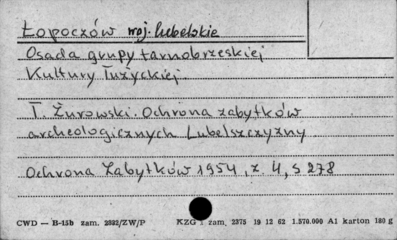 Łopoczów woj. lubelskie
Osada grupy tarnobrzeskiej
Kultury Łużyckiej.
T. Żurowski. Ochrona zabytków
archeologicznych Lubelszczyzny
Ochrona Zabytków 1954, z. 4, s 278
CWD — B-15b zam. 2892/ZW/P KZG 1 zam. 2375 19 12 62 1.570.000 A1 karton 180 g